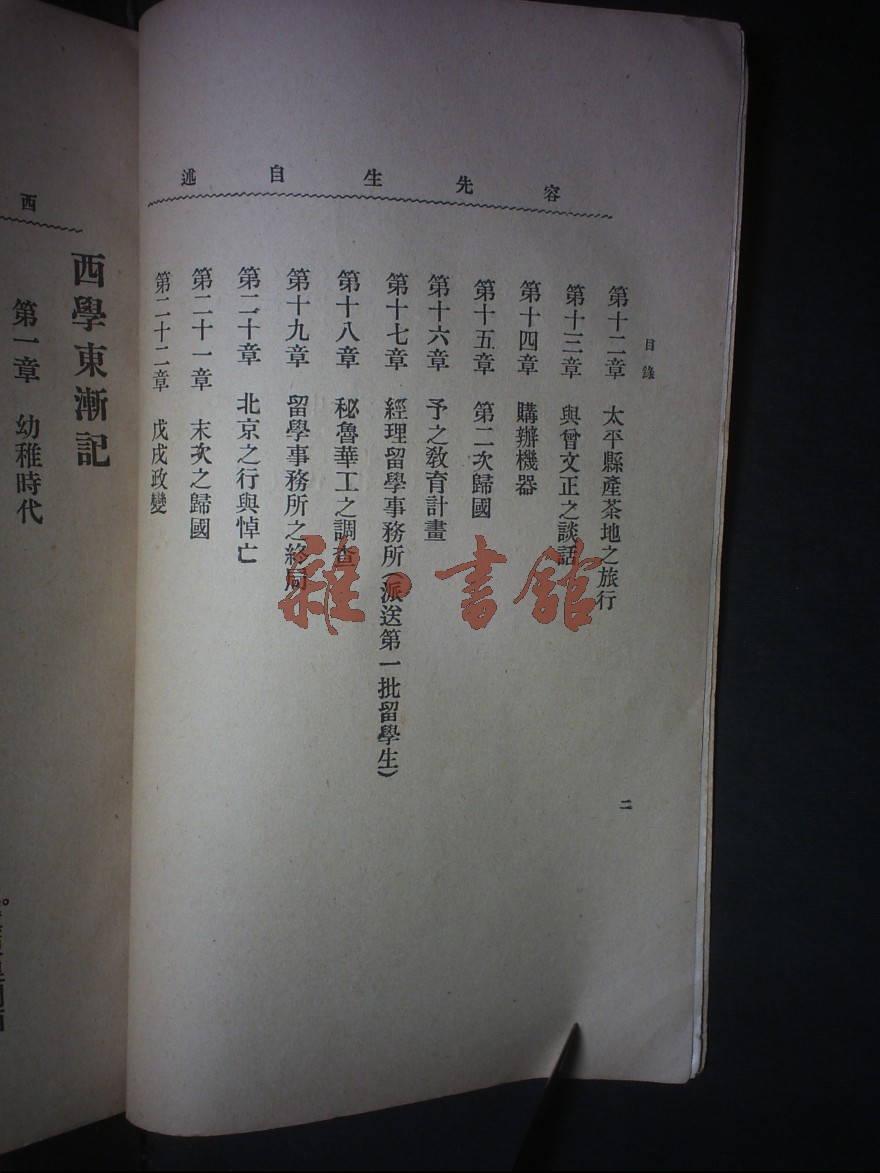 容先生自述
目錄
第十二章 太平縣產茶地之旅行
第十三章 與曾文正之談話
第十四章 購辦機器
第十五章 第二次歸國
第十六章 予之教育計畫
第十七章 經理留學事務所(派送第一批留學生)
第十八章 秘魯華工之調查
第十九章 留學事務所之終局
第二十章 北京之行與悼亡
第二十一章 末次之歸國
第二十二章 戊戌政變
二
雜·書館
西
西學東漸記
第一章 幼稚時代